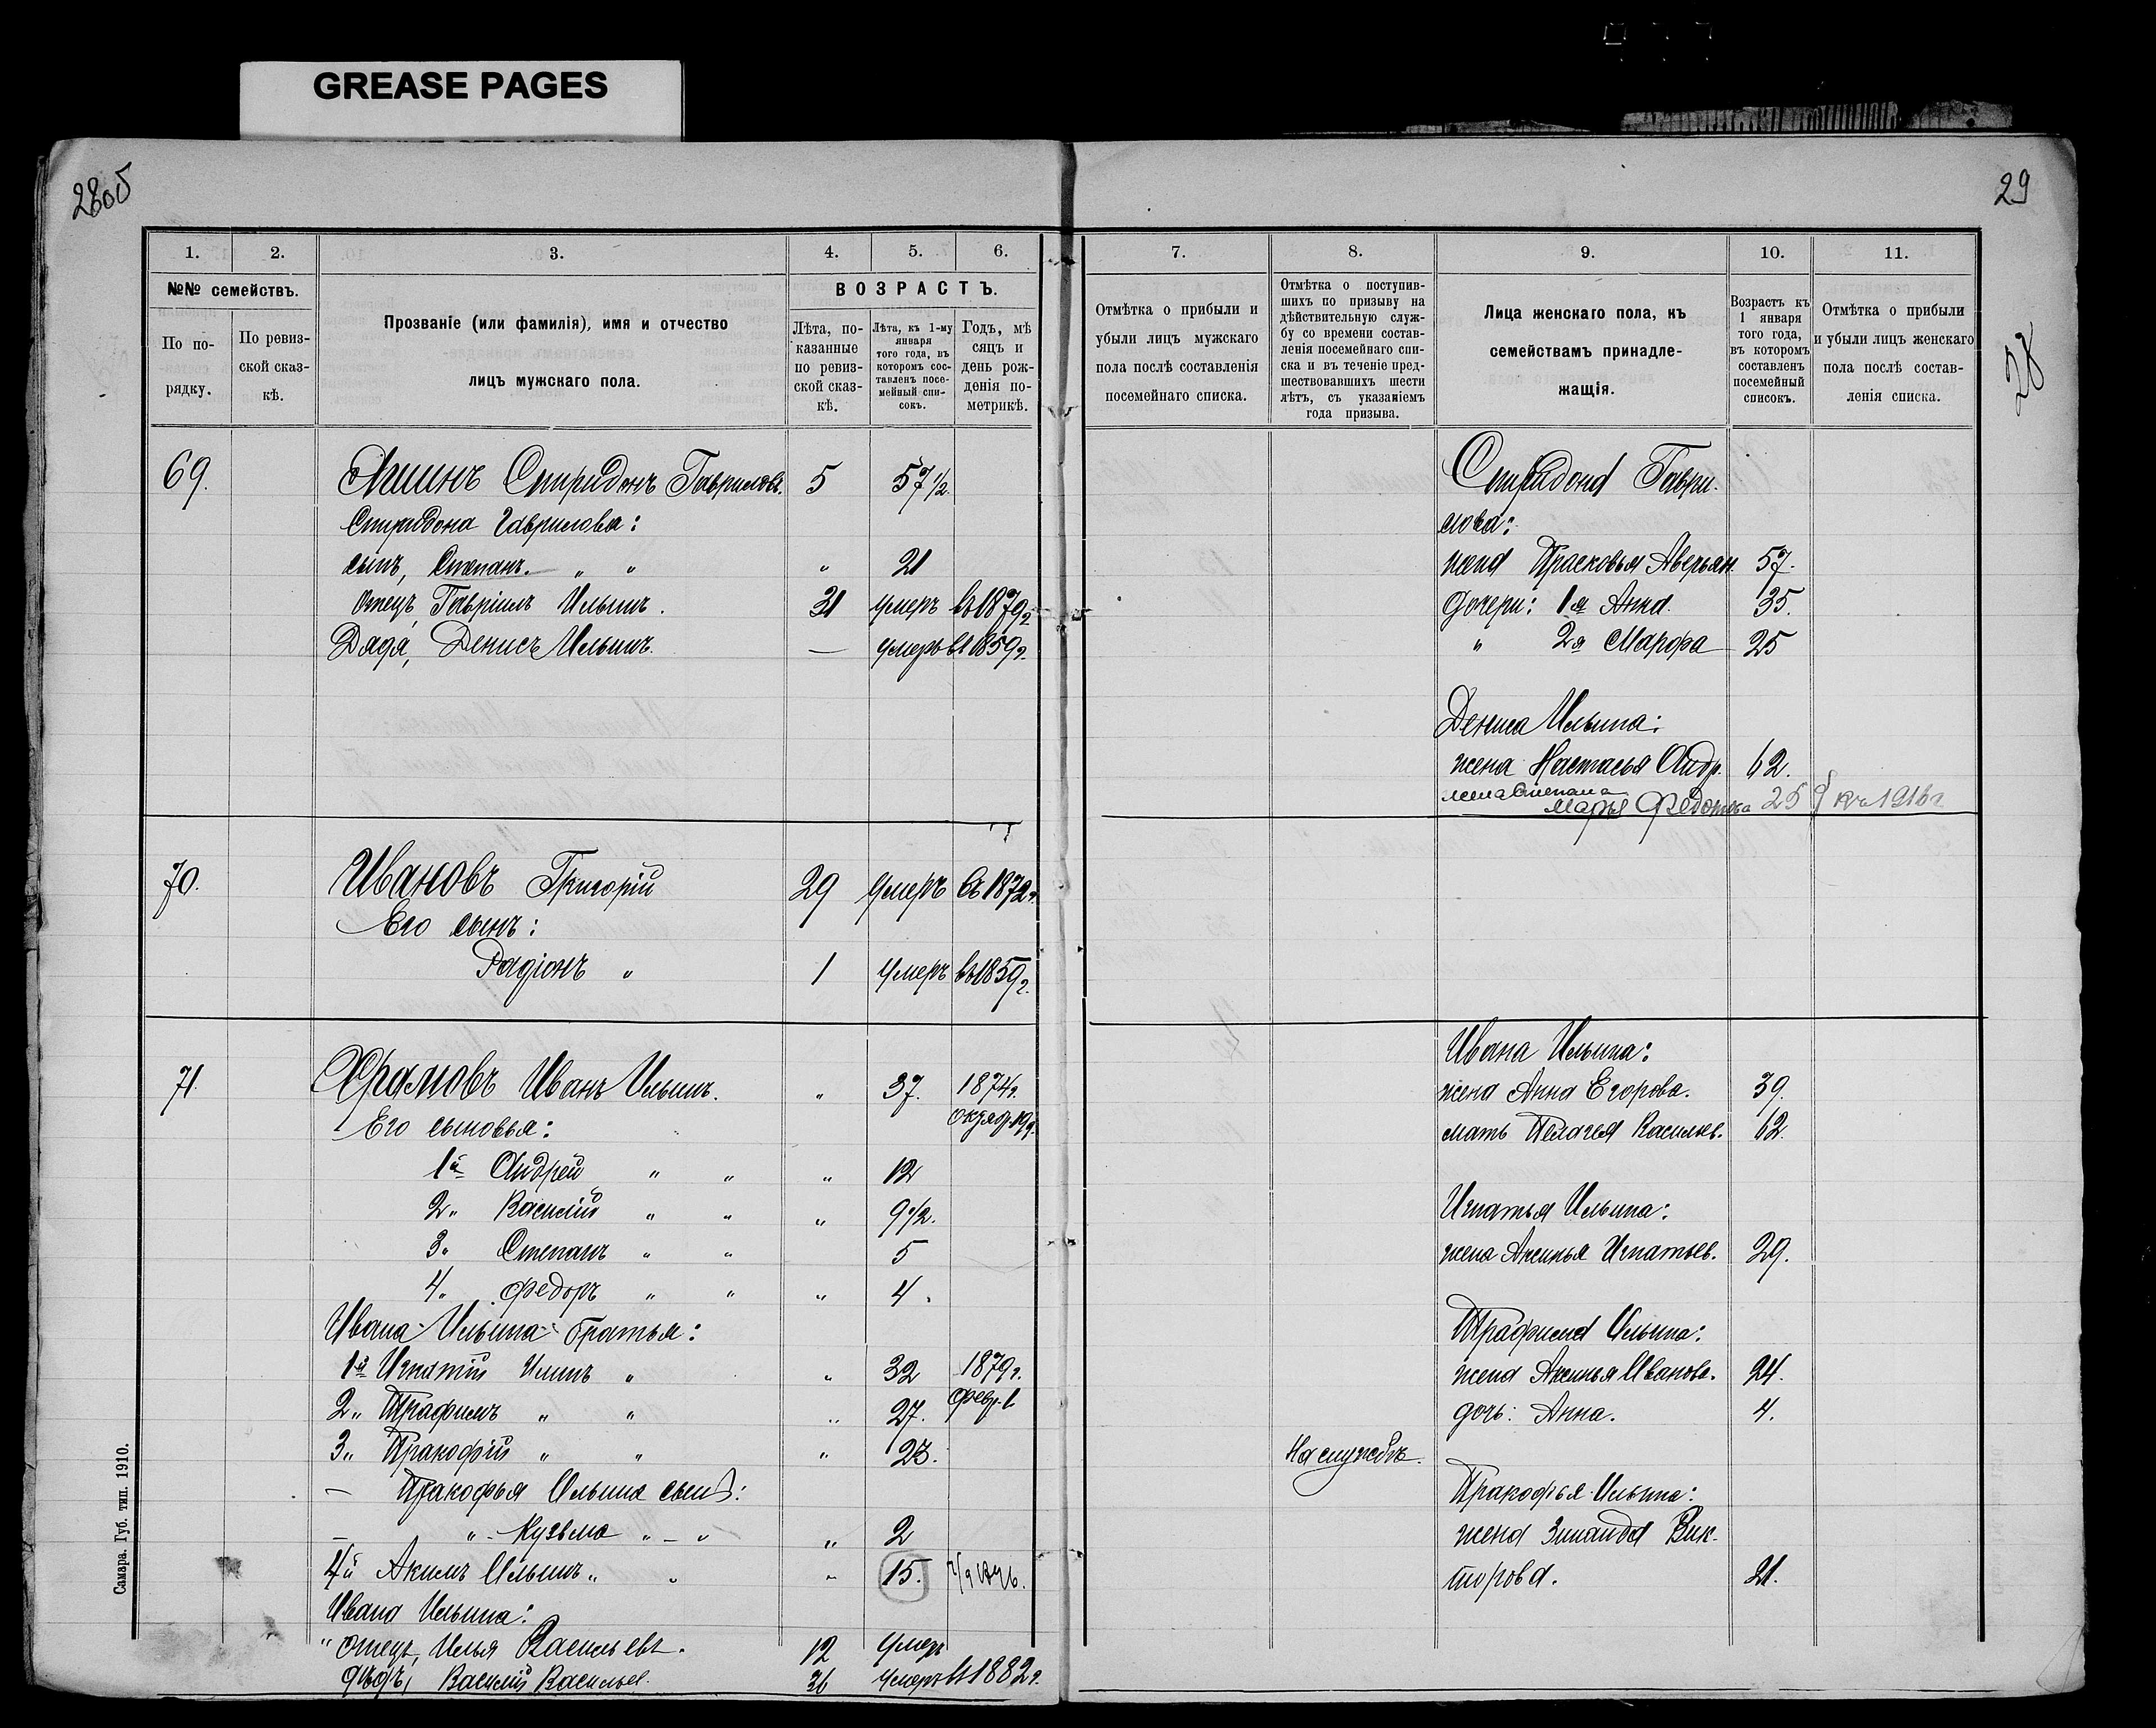 GREASE PAGES
2805
29
28
1.
2.
3.
4.
5.
6.
№№ семействъ.
ВОЗРАСТЪ.
По по-
рядку.
По ревиз-
ской сказ-
кѣ.
Прозваніе (или фамилія), имя и отчество
лицъ мужскаго пола.
Лѣта, по-
казанные
по ревиз-
ской сказ-
кѣ.
Лѣта, къ 1-му
января
того года, въ
которомъ сос-
тавленъ посе-
мейный спи-
сокъ.
Годъ, мѣ
сяцъ и
день рож-
денія по-
метрикѣ.
69. Спиридонъ Гавриловъ. 5 57 1/2.
Спиридона Гаврилова:
сынъ, Степанъ. „ „ „ 21
отецъ, Гавріилъ Ильинъ. 31 умеръ въ 1879 г.
Дядя, Денисъ Ильинъ. — умеръ въ 1859 г.
70. Ивановъ Григорій 29 умеръ въ 1872 г.
Его сынъ:
Радіонъ „ 1 умеръ въ 1859 г.
71. Храмовъ Иванъ Ильинъ. „ 37. 1874 г.
Его сыновья:
1й Андрей „ „ „ 12
2„ Василій „ „ „ 9 1/2.
3„ Степанъ „ „ 5
4„ Федоръ „ „ „ 4.
Ивана Ильина братья:
1й Игнатій Ильинъ „ „ 32 1879 г.
февр. 1
2„ Трафимъ „ „ „ 27.
3„ Пракофій „ „ „ 23.
— Пракофья Ильина сынъ:
— „ Кузьма „ — „ „ 2
4й Акимъ Ильинъ „ „ „ 15.
Ивана Ильина:
„ отецъ, Илья Васильевъ. 12 умеръ
дѣдъ, Василій Васильев. 36 умеръ въ 1882 г.
Самара. Губ. тип. 1910.
7.
8.
9.
10.
11.
Отмѣтка о прибыли и
убыли лицъ мужскаго
пола послѣ составленія
посемейнаго списка.
Отмѣтка о поступив-
шихъ по призыву на
дѣйствительную служ-
бу со времени состав-
ленія посемейнаго спи-
ска и въ теченіе пред-
шествовавшихъ шести
лѣтъ, съ указаніемъ
года призыва.
Лица женскаго пола, къ
семействамъ принадле-
жащія.
Возрастъ къ
1 января
того года,
въ которомъ
составленъ
посемейный
списокъ.
Отмѣтка о прибыли
и убыли лицъ женскаго
пола послѣ состав-
ленія списка.
Спиридона Гаври-
лова:
жена Прасковья Аверьян. 57.
дочери: 1я Анна. 35.
„ 2я Марфа 25
Дениса Ильина:
жена Настасья Андр. 62.
жена Степана
Марья Федотова 25
Ивана Ильина:
жена Анна Егорова. 39.
мать Пелагея Васильев. 62.
Игнатья Ильина:
жена Аксинья Игнатьев. 29.
Трафима Ильина:
жена Аксинья Иванова. 24.
дочь: Анна. 4.
На службѣ.
Пракофья Ильина:
жена Зинаида Вик-
торова. 21.